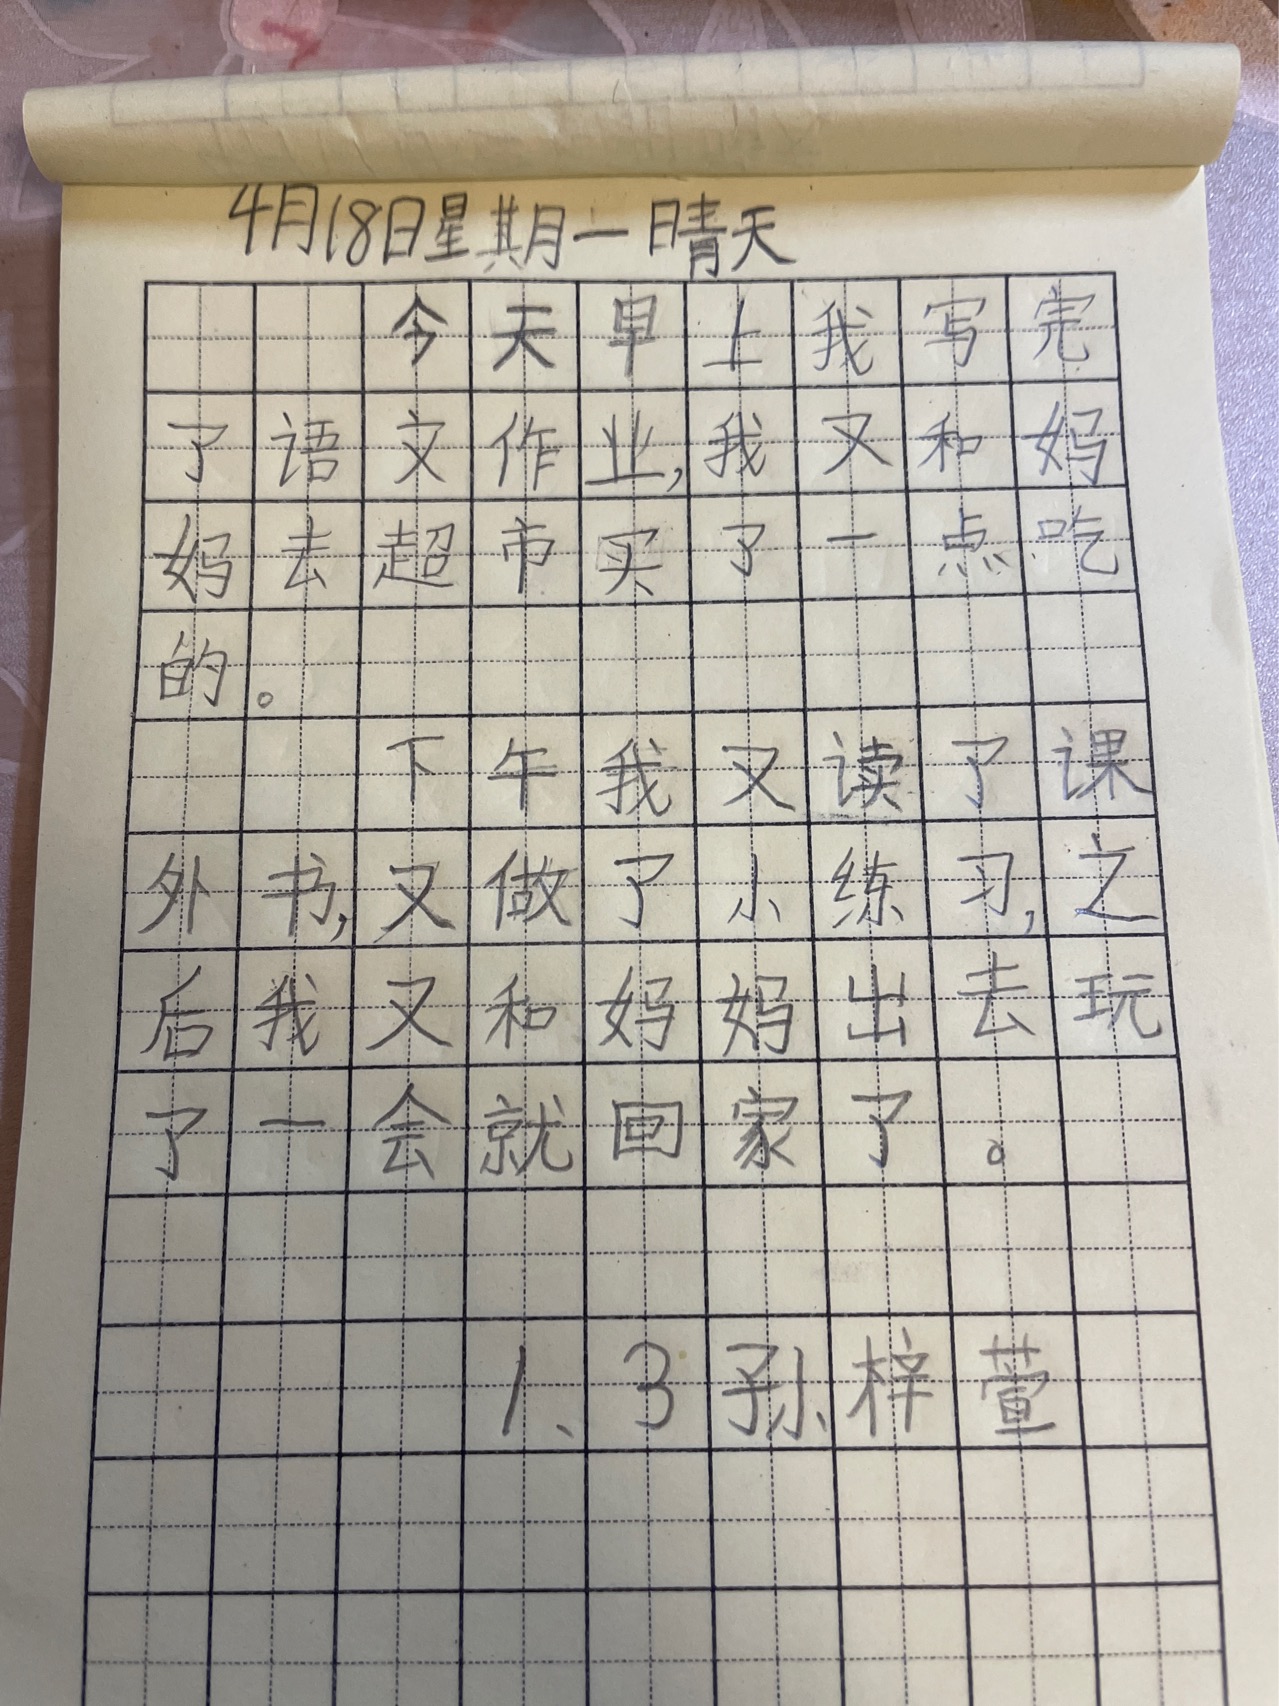 4月18日星期一晴天
今天早上我写完
了语文作业,我又和妈
妈去超市买了一点吃
的。
下午我又读了课
外书,又做了小练习,之
后我又和妈妈出去玩
了一会就回家了。
1、3孙梓萱